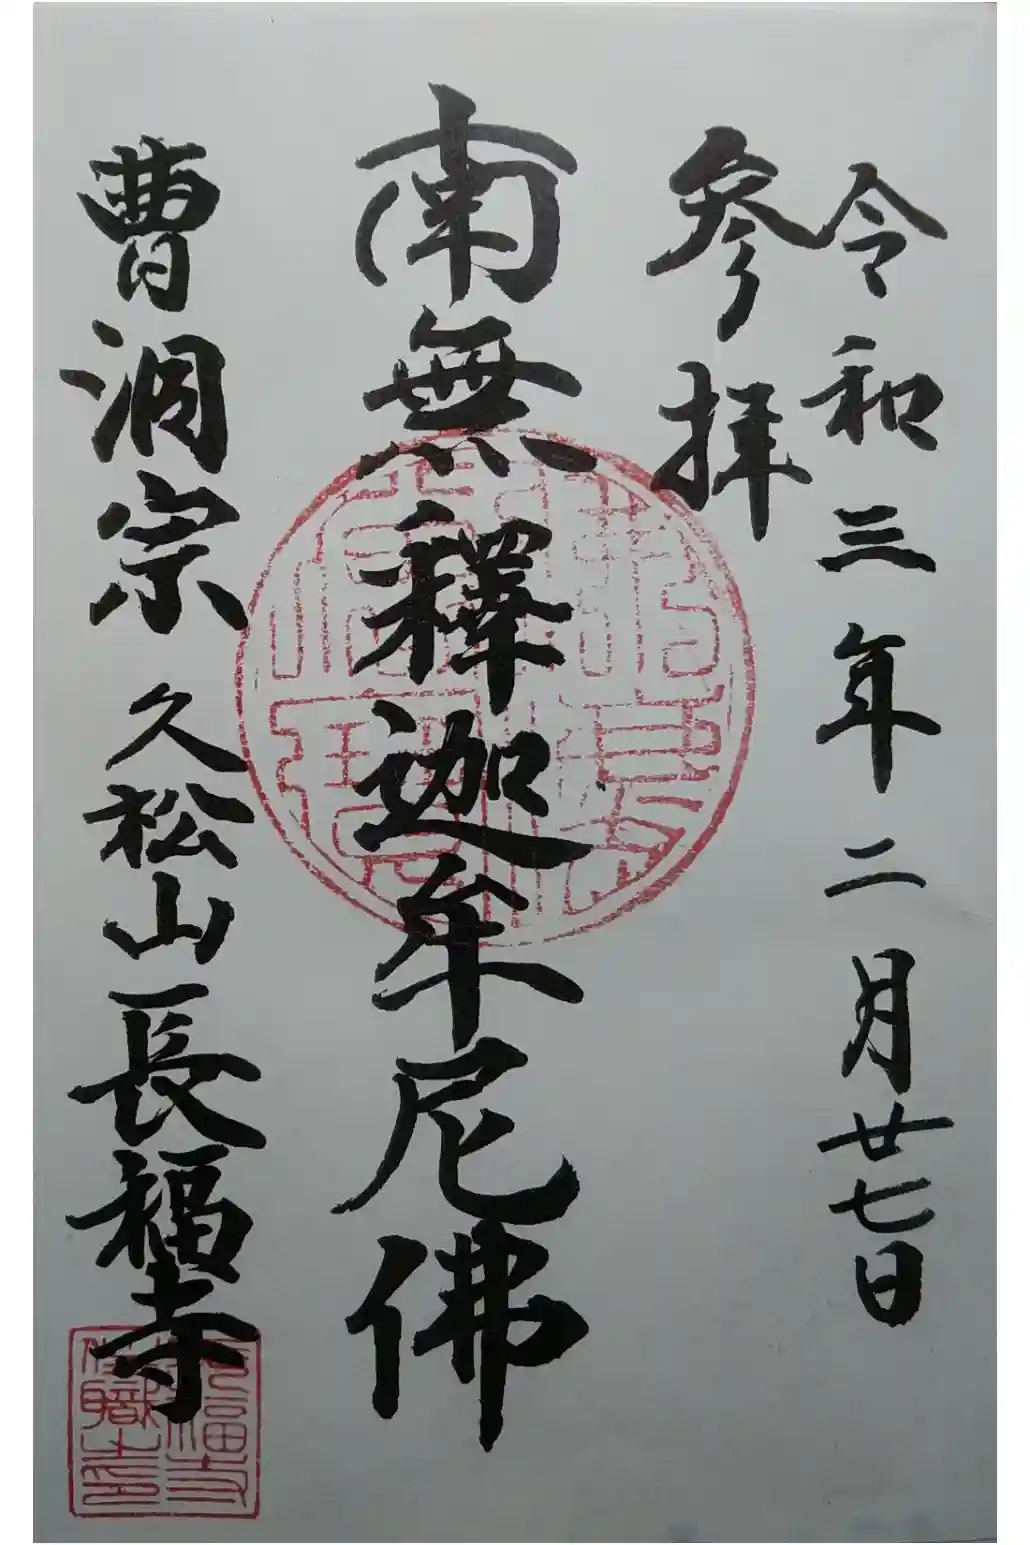 令和三年二月廿七日
參拝
南無釋迦牟尼佛
曹洞宗 久松山長福寺